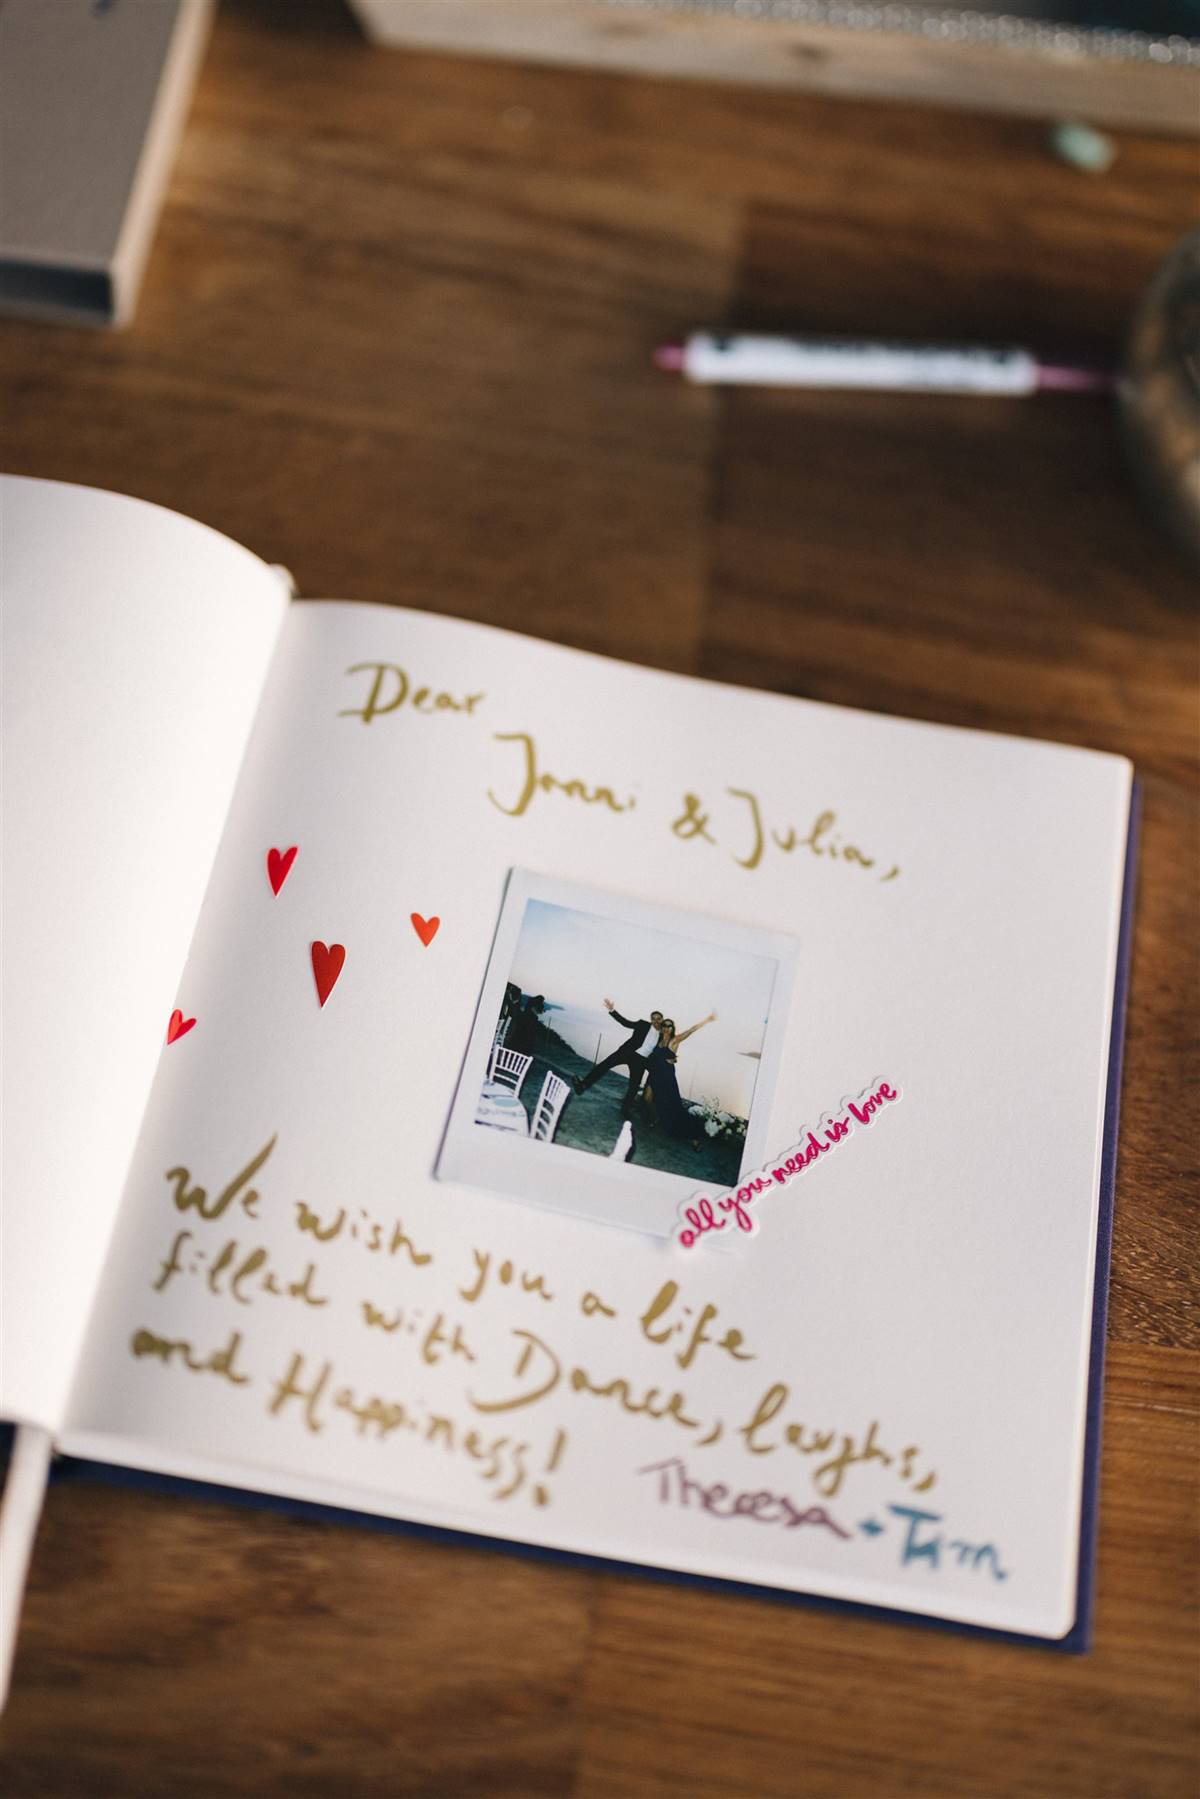 Dear
Janni & Julia,
all you need is love
We wish you a life
filled with Dance, laughs,
and Happiness!
Theresa + Tim